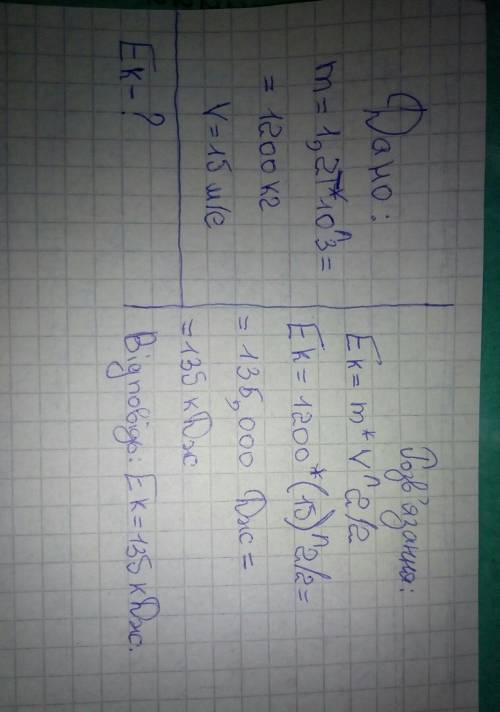 Дано:
m = 1,2т*10^3=
= 1200 кг
V = 15 м/с
Ek - ?
Розв'язання:
Ek = m * V^2/2
Ek = 1200*(15)^2/2=
= 135,000 Дж =
= 135 кДж
Відповідь: Ek = 135 кДж.